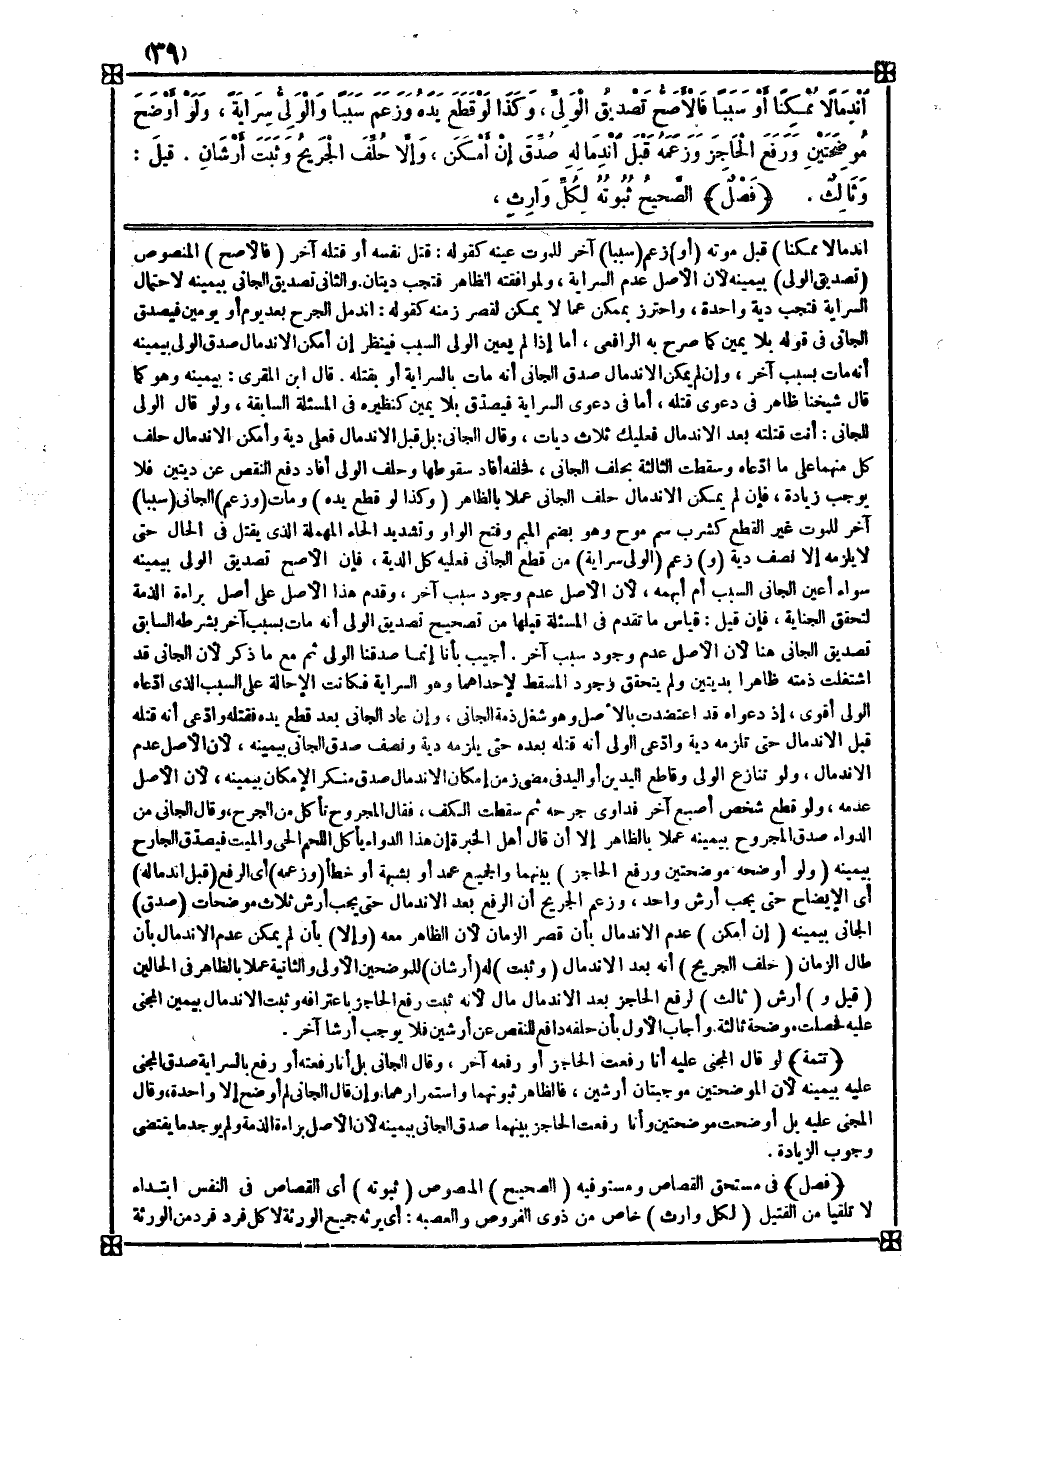 (٣٩)
ٱنْدِمَالًا مُمْكِنًا أَوْ سَبَبًا فَالْأَصَحُّ تَصْدِيقُ الْوَلِيِّ ، وَكَذَا لَوْ قَطَعَ يَدَهُ وَزَعَمَ سَبَبًا وَالْوَلِيُّ سِرَايَةً ، وَلَوْ أَوْضَحَ
مُوضِحَتَيْنِ وَرَفَعَ الْحَاجِزَ وَزَعَمَهُ قَبْلَ ٱنْدِمَالِهِ صُدِّقَ إِنْ أَمْكَنَ ، وَإِلَّا حُلِّفَ الْجَرِيحُ وَثَبَتَ أَرْشَانِ . قِيلَ :
وَثَالِثٌ . ﴿فَصْلٌ﴾ الصَّحِيحُ ثُبُوتُهُ لِكُلِّ وَارِثٍ ،
اندمالا ممكنا) قبل موته (أو) زعم (سببا) آخر للموت عينه كقوله : قتل نفسه أو قتله آخر ( فالأصح ) المنصوص
(تصديق الولى) بيمينه لأن الأصل عدم السراية ، ولموافقته الظاهر فتجب ديتان. والثانى تصديق الجانى بيمينه لاحتمال
السراية فتجب دية واحدة ، واحترز بممكن عما لا يمكن لقصر زمنه كقوله : اندمل الجرح بعد يوم أو يومين فيصدق
الجانى فى قوله بلا يمين كما صرح به الرافعى ، أما إذا لم يعين الولى السبب فينظر إن أمكن الاندمال صدق الولى بيمينه
أنه مات بسبب آخر ، وإن لم يمكن الاندمال صدق الجانى أنه مات بالسراية أو بقتله . قال ابن المقرى : بيمينه وهو كما
قال شيخنا ظاهر فى دعوى قتله ، أما فى دعوى السراية فيصدّق بلا يمين كنظيره فى المسئلة السابقة ، ولو قال الولى
للجانى : أنت قتلته بعد الاندمال فعليك ثلاث ديات ، وقال الجانى: بل قبل الاندمال فعلى دية وأمكن الاندمال حلف
كل منهما على ما ادّعاه وسقطت الثالثة بحلف الجانى ، فحلفه أفاد سقوطها وحلف الولى أفاد دفع النقص عن ديتين فلا
يوجب زيادة ، فإن لم يمكن الاندمال حلف الجانى عملا بالظاهر ( وكذا لو قطع يده ) ومات (وزعم) الجانى (سببا)
آخر للموت غير القطع كشرب سم موح وهو بضم الميم وفتح الواو وتشديد الحاء المهملة الذى يقتل فى الحال حتى
لا يلزمه إلا نصف دية (و) زعم (الولى سراية) من قطع الجانى فعليه كل الدية ، فإن الأصح تصديق الولى بيمينه
سواء أعين الجانى السبب أم أبهمه ، لأن الأصل عدم وجود سبب آخر ، وقدم هذا الأصل على أصل براءة الذمة
لتحقق الجناية ، فإن قيل : قياس ما تقدم فى المسئلة قبلها من تصحيح تصديق الولى أنه مات بسبب آخر بشرطه السابق
تصديق الجانى هنا لأن الأصل عدم وجود سبب آخر . أجيب بأنا إنما صدقنا الولى ثم مع ما ذكر لأن الجانى قد
اشتغلت ذمته ظاهرا بديتين ولم يتحقق وجود المسقط لإحداهما وهو السراية فكانت الإحالة على السبب الذى ادّعاه
الولى أقوى ، إذ دعواه قد اعتضدت بالأصل وهو شغل ذمة الجانى ، وإن عاد الجانى بعد قطع يده فقتله وادّعى أنه قتله
قبل الاندمال حتى تلزمه دية وادّعى الولى أنه قتله بعده حتى يلزمه دية ونصف صدق الجانى بيمينه ، لأن الأصل عدم
الاندمال ، ولو تنازع الولى وقاطع اليدين أو اليد فى مضى زمن إمكان الاندمال صدق منكر الإمكان بيمينه ، لأن الأصل
عدمه ، ولو قطع شخص أصبع آخر فداوى جرحه ثم سقطت الكف ، فقال المجروح تأكل من الجرح، وقال الجانى من
الدواء صدق المجروح بيمينه عملا بالظاهر إلا أن قال أهل الخبرة إن هذا الدواء يأكل اللحم الحى والميت فيصدّق الجارح
بيمينه ( ولو أوضحه موضحتين ورفع الحاجز ) بينهما والجميع عمد أو بشبهة أو خطأ (وزعمه) أى الرفع (قبل اندماله)
أى الإيضاح حتى يجب أرش واحد ، وزعم الجريح أن الرفع بعد الاندمال حتى يجب أرش ثلاث موضحات (صدق)
الجانى بيمينه ( إن أمكن ) عدم الاندمال بأن قصر الزمان لأن الظاهر معه (وإلا) بأن لم يمكن عدم الاندمال بأن
طال الزمان ( حلف الجريح ) أنه بعد الاندمال ( وثبت ) له (أرشان) للموضحتين الأولى والثانية عملا بالظاهر فى الحالين
( قيل و ) أرش ( ثالث ) لرفع الحاجز بعد الاندمال مال لأنه ثبت رفع الحاجز باعترافه وثبت الاندمال بيمين المجنى
عليه فحصلت موضحة ثالثة. وأجاب الأول بأن حلفه دافع للنقص عن أرشين فلا يوجب أرشا آخر .
﴿تتمة﴾ لو قال المجنى عليه أنا رفعت الحاجز أو رفعه آخر ، وقال الجانى بل أنا رفعته أو رفع بالسراية صدق المجنى
عليه بيمينه لأن الموضحتين موجبتان أرشين ، فالظاهر ثبوتهما واستمرارهما، وإن قال الجانى لم أوضح إلا واحدة، وقال
المجنى عليه بل أوضحت موضحتين وأنا رفعت الحاجز بينهما صدق الجانى بيمينه لأن الأصل براءة الذمة ولم يوجد ما يقتضى
وجوب الزيادة .
﴿فصل﴾ فى مستحق القصاص ومستوفيه ( الصحيح ) المنصوص ( ثبوته ) أى القصاص فى النفس ابتداء
لا تلقيا من القتيل ( لكل وارث ) خاص من ذوى الفروض والعصبة : أى يرثه جميع الورثة لا كل فرد فرد من الورثة